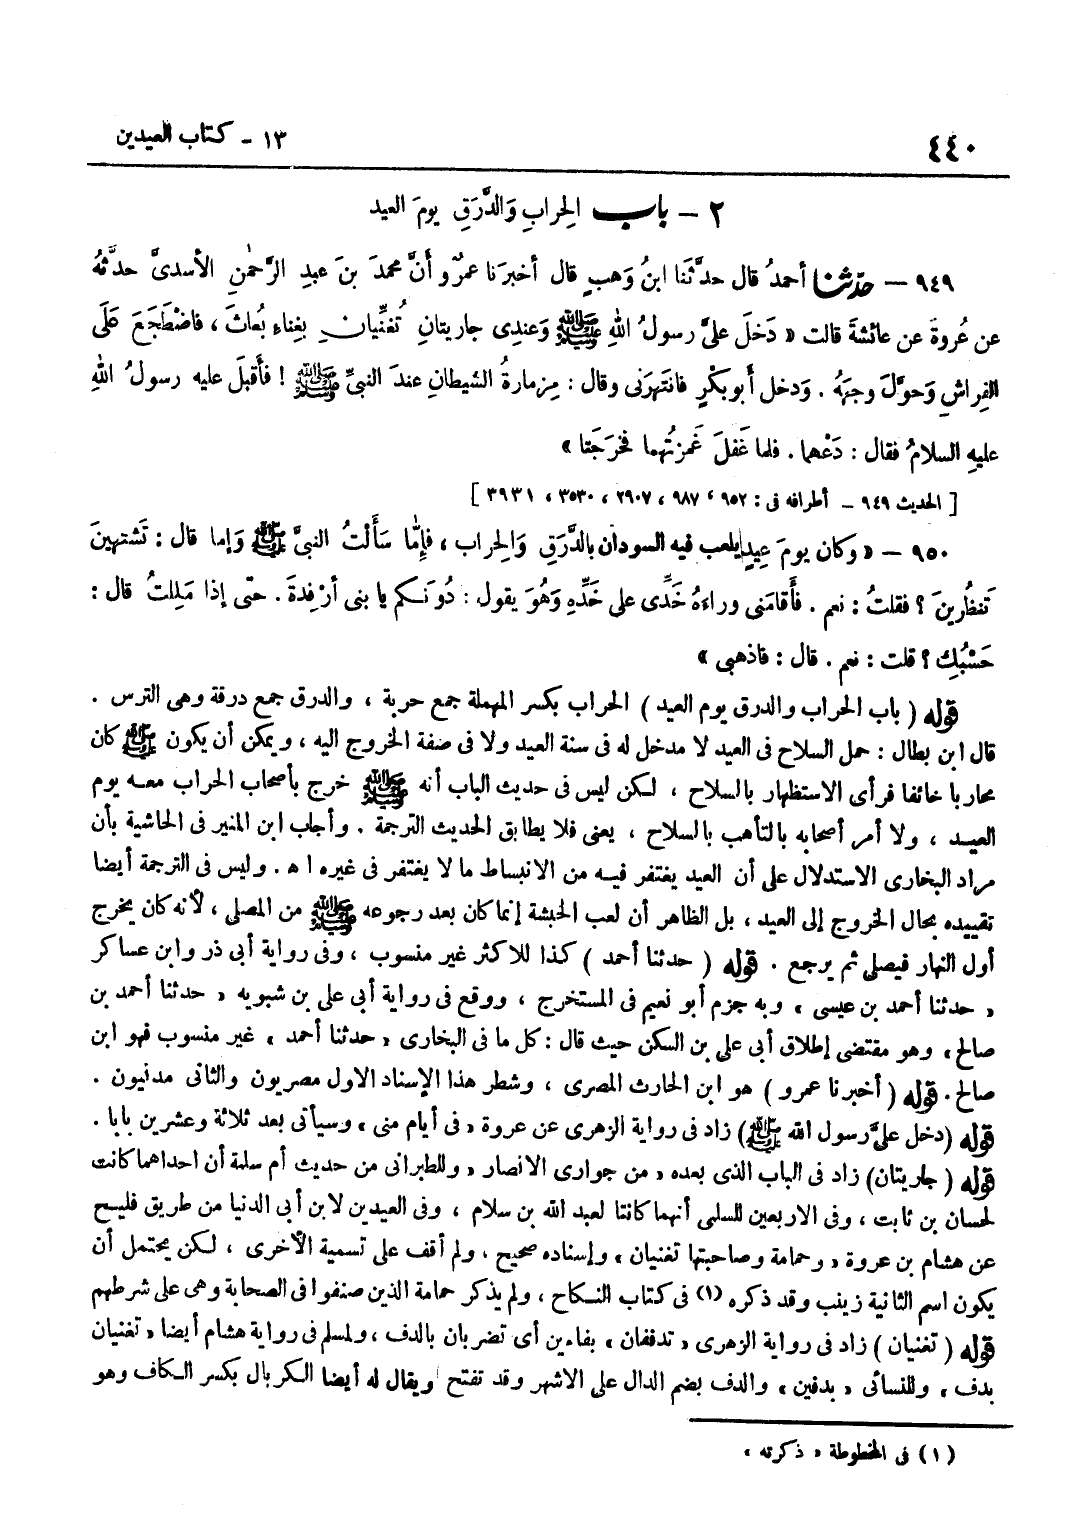 ٤٤٠
١٣ - كتاب العيدين
٢ - باب الحِرابِ وَالدَّرَقِ يومَ العيد
٩٤٩ - حدّثنا أحمدُ قال حدَّثَنا ابنُ وَهبٍ قال أخبرَنا عمرٌو أنَّ محمدَ بنَ عبدِ الرَّحمٰنِ الأسدىَّ حدَّثهُ
عن عُروةَ عن عائشةَ قالت « دَخلَ علىَّ رسولُ اللهِ ﷺ وَعندِى جاريتانِ تُغنِّيانِ بِغناءِ بُعاثَ ، فاضْطَجَعَ عَلَى
الفِراشِ وَحوَّلَ وجهَهُ . وَدخل أبو بكْرٍ فانتَهرَنى وقال : مِزمارةُ الشيطانِ عندَ النبىِّ ﷺ ! فأقبلَ عليه رسولُ اللهِ
عليهِ السلامُ فقال : دَعْهما . فلما غَفلَ غَمزتُهما فخرَجَتا »
[ الحديث ٩٤٩ - أطرافه فى : ٩٥٢ ، ٩٨٧ ، ٢٩٠٧ ، ٣٥٣٠ ، ٣٩٣١ ]
٩٥٠ - « وكان يومَ عيدٍ يلعب فيه السودان بالدَّرَقِ وَالحِراب ، فإمّا سَألتُ النبىَّ ﷺ وَإما قال : تَشتهينَ
تَنظُرينَ ؟ فقلتُ : نعم . فأقامَنى وراءَهُ خَدِّى على خَدِّهِ وَهُوَ يقول : دُونَكم يا بنى أرْفِدةَ . حتى إذا مَلِلتُ قال :
حَسْبُكِ ؟ قلت : نعم . قال : فاذهبى »
قوله ( باب الحراب والدرق يوم العيد ) الحراب بكسر المهملة جمع حربة ، والدرق جمع درقة وهى الترس .
قال ابن بطال : حمل السلاح فى العيد لا مدخل له فى سنة العيد ولا فى صفة الخروج اليه ، ويمكن أن يكون ﷺ كان
محاربا خائفا فرأى الاستظهار بالسلاح ، لكن ليس فى حديث الباب أنه ﷺ خرج بأصحاب الحراب معه يوم
العيد ، ولا أمر أصحابه بالتأهب بالسلاح ، يعنى فلا يطابق الحديث الترجمة . وأجاب ابن المنير فى الحاشية بأن
مراد البخارى الاستدلال على أن العيد يغتفر فيه من الانبساط ما لا يغتفر فى غيره ا ه . وليس فى الترجمة أيضا
تقييده بحال الخروج إلى العيد ، بل الظاهر أن لعب الحبشة إنما كان بعد رجوعه ﷺ من المصلى ، لأنه كان يخرج
أول النهار فيصلى ثم يرجع . قوله ( حدثنا أحمد ) كذا للاكثر غير منسوب ، وفى رواية أبى ذر وابن عساكر
« حدثنا أحمد بن عيسى » وبه جزم أبو نعيم فى المستخرج ، ووقع فى رواية أبى على بن شبويه « حدثنا أحمد بن
صالح » وهو مقتضى إطلاق أبى على بن السكن حيث قال : كل ما فى البخارى « حدثنا أحمد » غير منسوب فهو ابن
صالح . قوله ( أخبرنا عمرو ) هو ابن الحارث المصرى ، وشطر هذا الإسناد الاول مصريون والثانى مدنيون .
قوله (دخل علىَّ رسول الله ﷺ) زاد فى رواية الزهرى عن عروة « فى أيام منى » وسيأتى بعد ثلاثة وعشرين بابا .
قوله ( جاريتان) زاد فى الباب الذى بعده « من جوارى الانصار » وللطبرانى من حديث أم سلمة أن احداهما كانت
لحسان بن ثابت ، وفى الاربعين للسلمى أنهما كانتا لعبد الله بن سلام ، وفى العيدين لابن أبى الدنيا من طريق فليح
عن هشام بن عروة « وحمامة وصاحبتها تغنيان » وإسناده صحيح ، ولم أقف على تسمية الأخرى ، لكن يحتمل أن
يكون اسم الثانية زينب وقد ذكره (١) فى كتاب النكاح ، ولم يذكر حمامة الذين صنفوا فى الصحابة وهى على شرطهم
قوله ( تغنيان ) زاد فى رواية الزهرى « تدففان » بفاءين أى تضربان بالدف ، ولمسلم فى رواية هشام أيضا « تغنيان
بدف » وللنسائى « بدفين » والدف بضم الدال على الاشهر وقد تفتح ويقال له أيضا الكربال بكسر الكاف وهو
(١) فى المخطوطة « ذكرته »